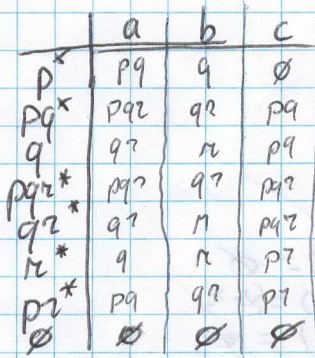 a b c
p* pq q ∅
pq* pqr qr pq
q qr r pq
pqr* pqr qr pqr
qr* qr r pqr
r* q r pr
pr* pq qr pr
∅ ∅ ∅ ∅